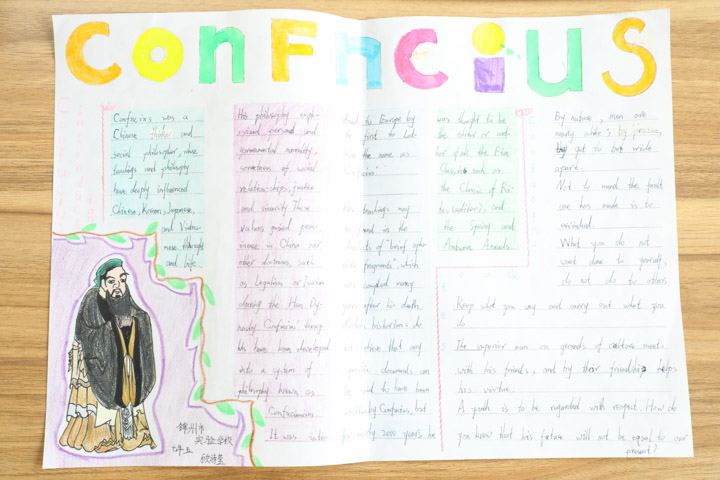 ConFucius
Confucius was a
Chinese thinker and
social philosopher, whose
teachings and philosophy
have deeply influenced
Chinese, Korean, Japanese,
and Vietna-
mese thought
and life.
His philosophy emph-
asized personal and
governmental morality,
correctness of social
relationships, justice
and sincerity. These
values gained
in China over
other doctrines, such
as Legalism or
during the Han Dy-
nasty Confucius'
have been developed
into a system of
philosophy known as
Confucianism.
It was
to Europe by
first to
the name as
teachings may
found in the
of "brief
fragments", which
compiled many
years after his death.
historians do
believe that any
specific documents can
said to have been
by Confucius, but
for nearly 2000 years he
was thought to be
the editor or aut-
hor of all the Five
Classics such as
the Classic of Ri-
tes (editor), and
the Spring and
Autumn Annals
By nature, men are
nearly alike; by practice,
get to be wide
apart.
Not to mend the fault
one has made is to
What you do not
want done to yourself,
do not do to others
Keep what you say and carry out what you
do
The superior man on grounds of culture meets
with his friends, and by their friendship helps
his virtue
A youth is to be regarded with respect. How do
you know that his future will not be equal to our
present?
锦州市
实验学校
七年五